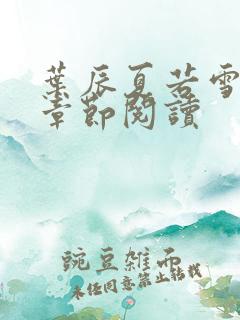 葉辰夏若雪
章節閱讀
豌豆雜而
未经同意禁止转载